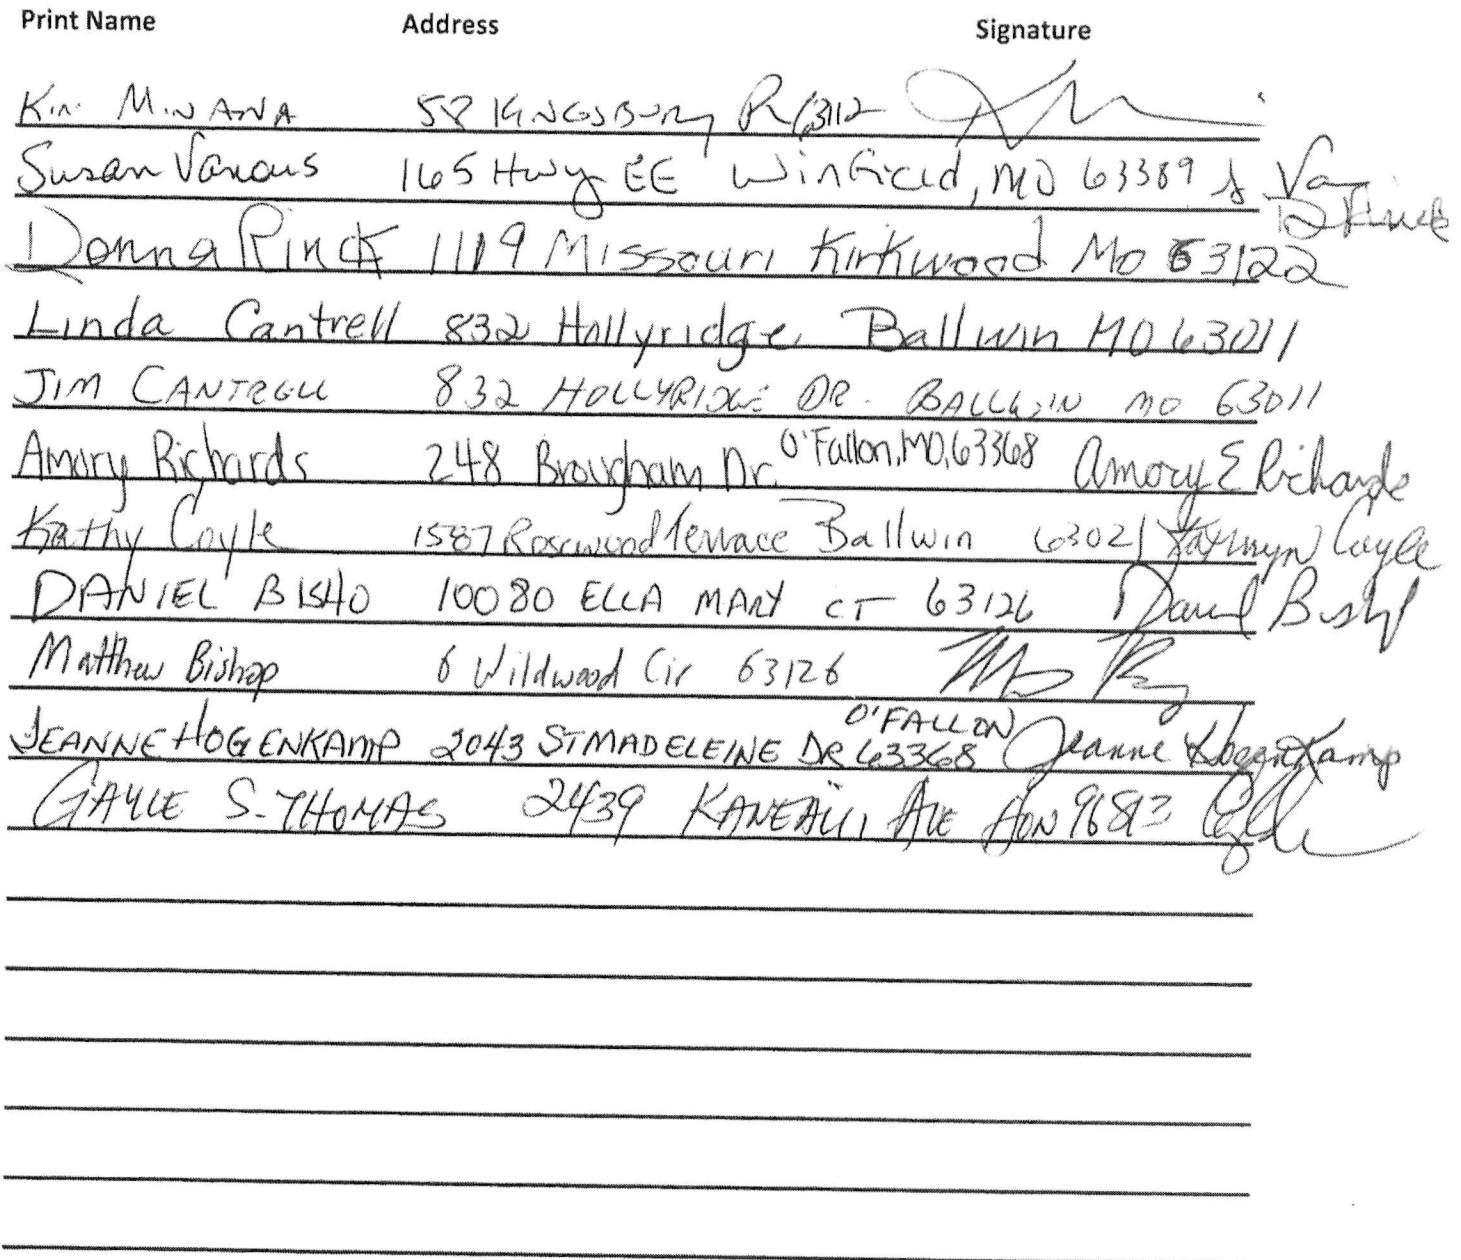 Print Name Address Signature
Kim Minana 58 Kingsbury Pl 63112
Susan Vanous 165 Hwy EE Winfield, MO 63389 S Va
D Rinck
Donna Rinck 1119 Missouri Kirkwood Mo 63122
Linda Cantrell 832 Hollyridge, Ballwin MO 63011
JIM CANTRELL 832 HOLLYRIDGE DR. BALLWIN MO 63011
Amory Richards 248 Brougham Dr. O'Fallon, MO, 63368 Amory E Richards
Kathy Coyle 1587 Rosewood Terrace Ballwin 63021 Kathryn Coyle
DANIEL BISHO 10080 ELLA MARY CT 63126 Daniel Bishop
Matthew Bishop 6 Wildwood Cir 63126
JEANNE HOGENKAMP 2043 ST MADELEINE DR O'FALLON 63368 Jeanne Hogenkamp
GAYLE S. THOMAS 2439 Ave HON 96813